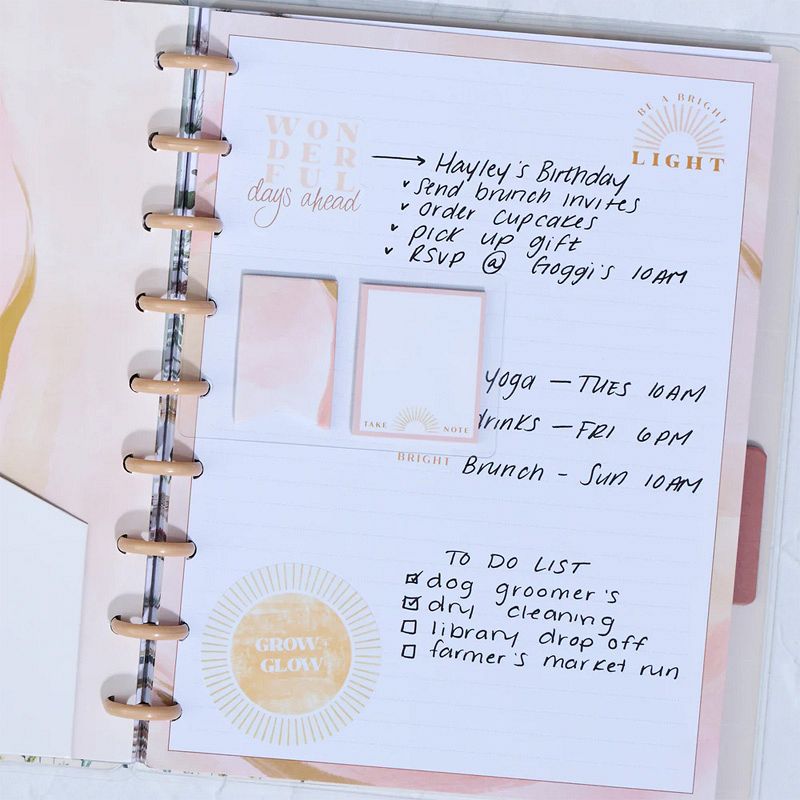 BE A BRIGHT
LIGHT
WON
DER
FUL
days ahead
Hayley's Birthday
send brunch invites
order cupcakes
pick up gift
RSVP @ Goggi's 10AM
TAKE NOTE
Yoga — TUES 10AM
drinks — FRI 6PM
BRIGHT
Brunch - Sun 10AM
TO DO LIST
dog groomer's
dry cleaning
library drop off
farmer's market run
GROW +
GLOW